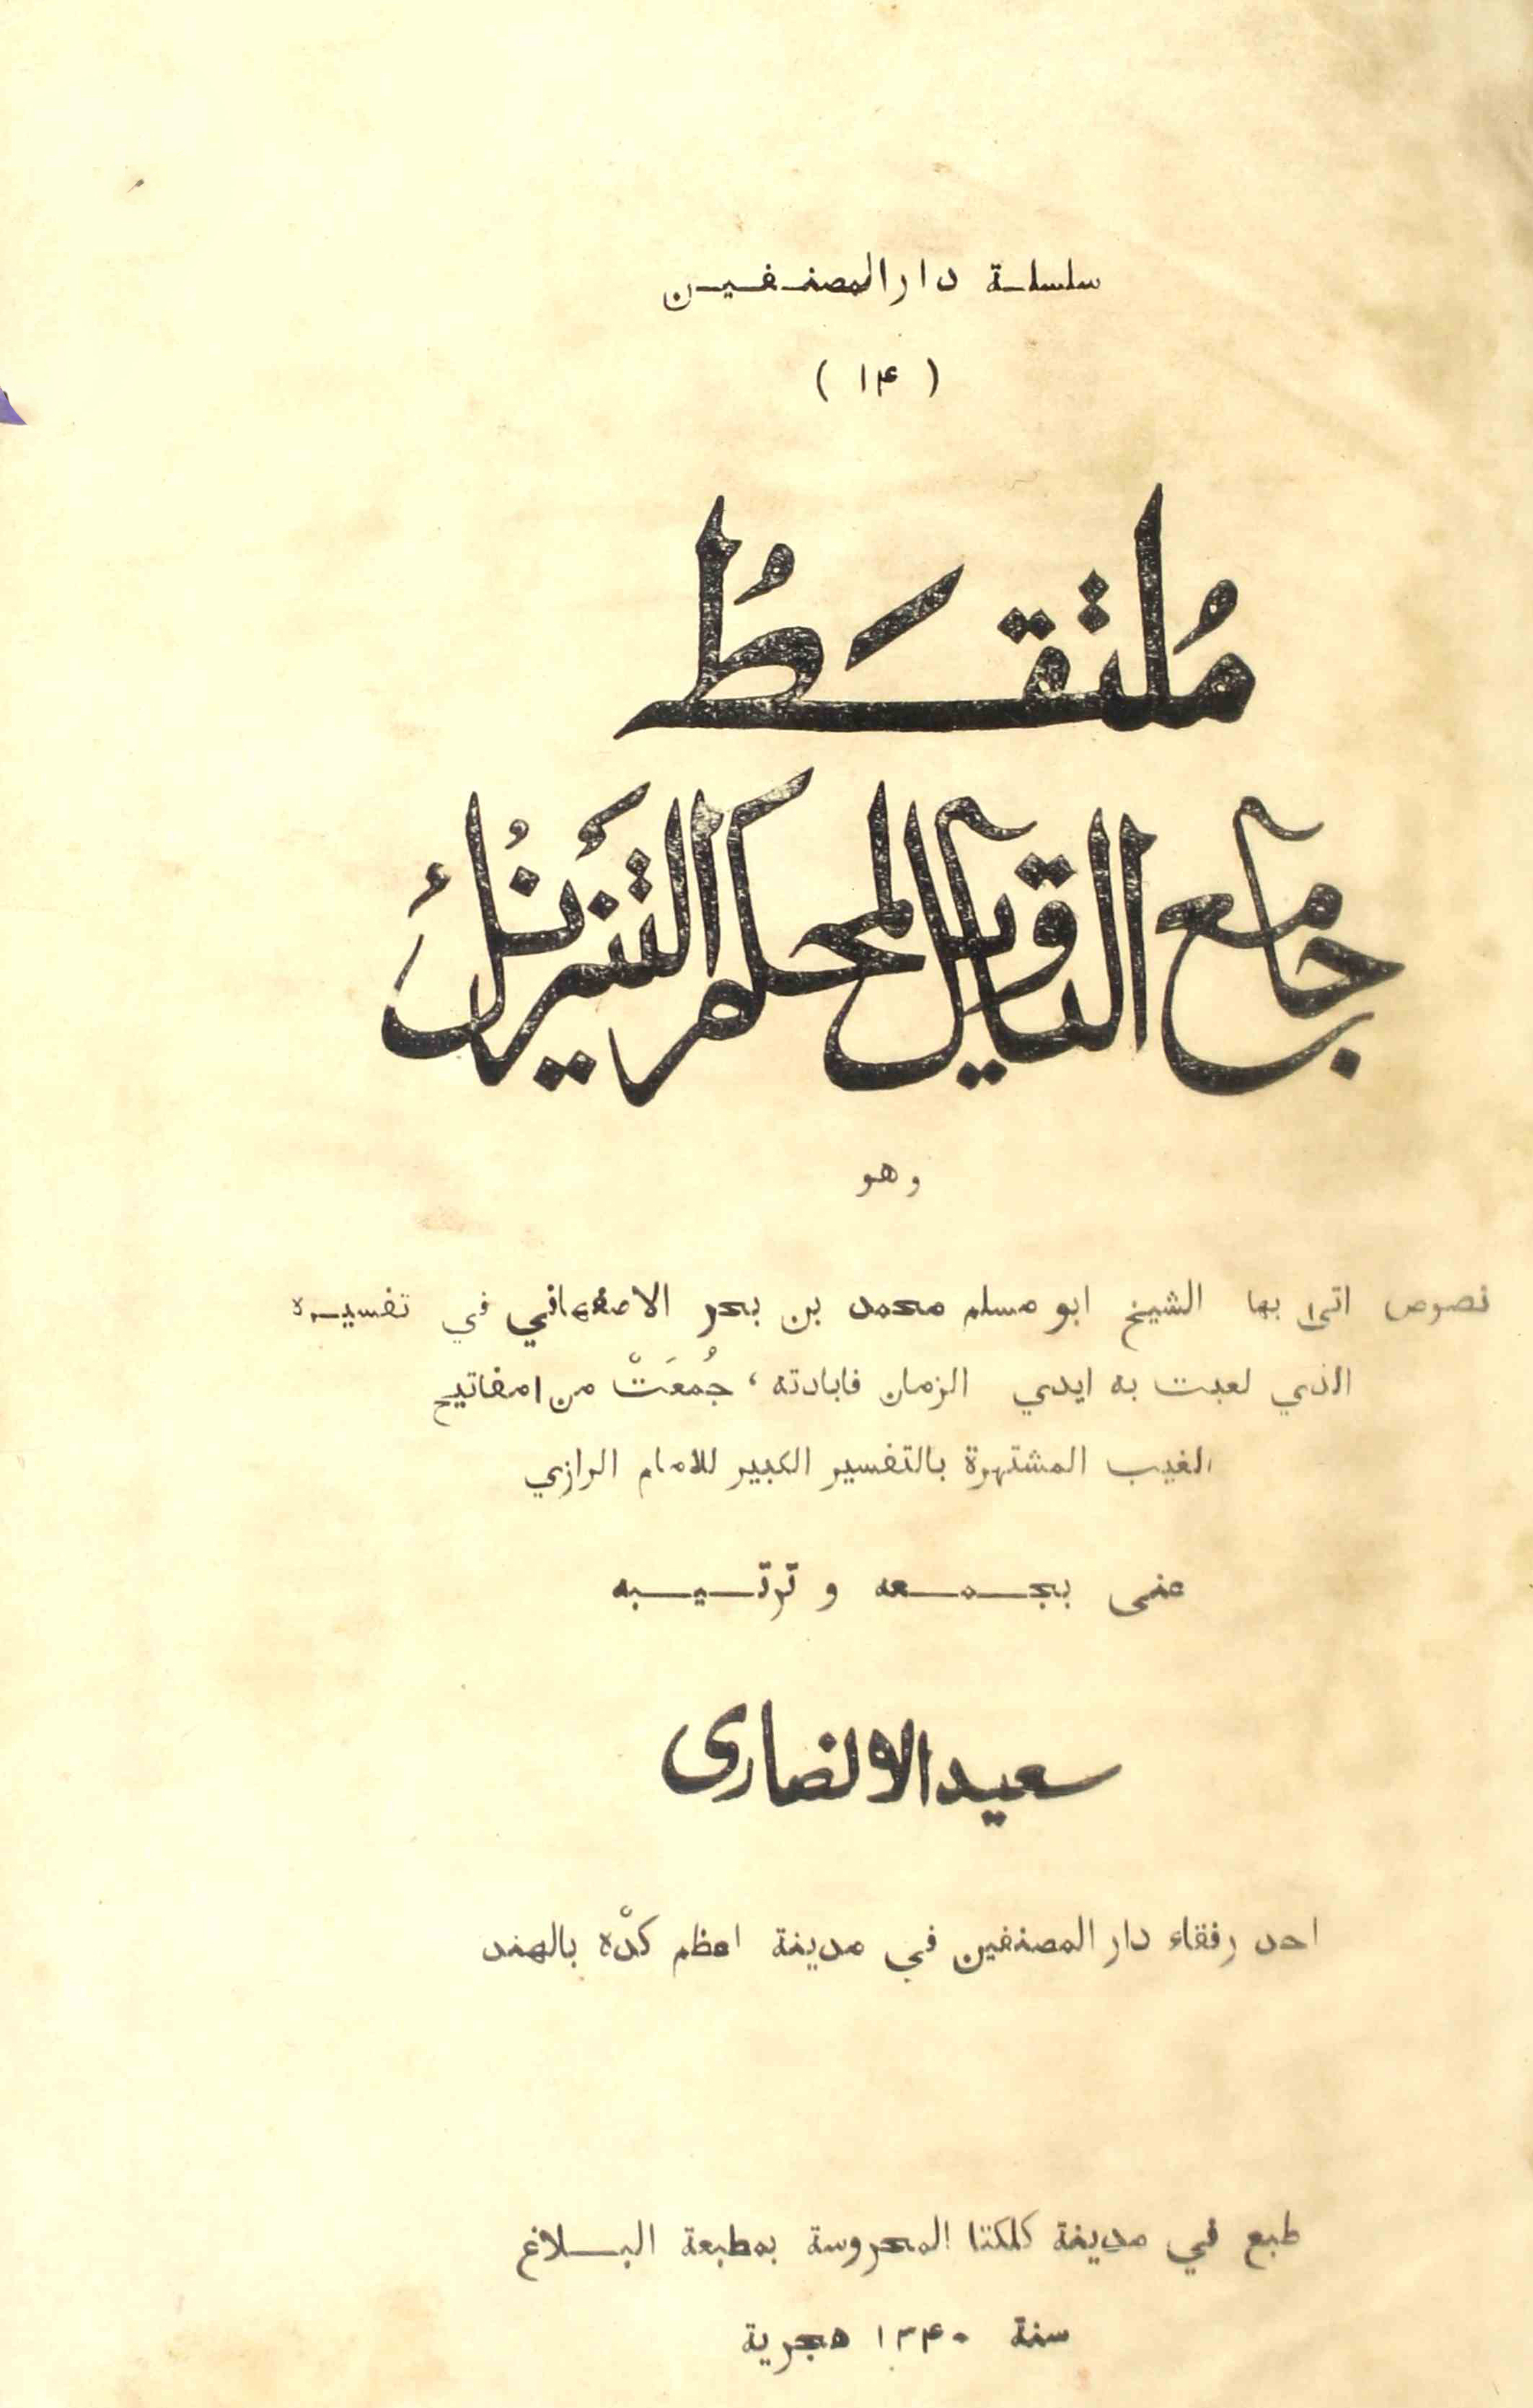 سلسلة دار المصنفين
( ١۴ )
مُلتقَطُ
جامع التاويل لمحكم التنزيل
و هو
نصوص اتى بها الشيخ ابو مسلم محمد بن بحر الاصفهاني في تفسيره
الذي لعبت به ايدي الزمان فابادته ، جُمعَتْ من مفاتيح
الغيب المشتهرة بالتفسير الكبير للامام الرازي
عنى بجمعه و ترتيبه
سعيد الانصارى
احد رفقاء دار المصنفين في مدينة اعظم كدّه بالهند
طبع في مدينة كلكتا المحروسة بمطبعة البلاغ
سنة ١٣۴٠ هجرية